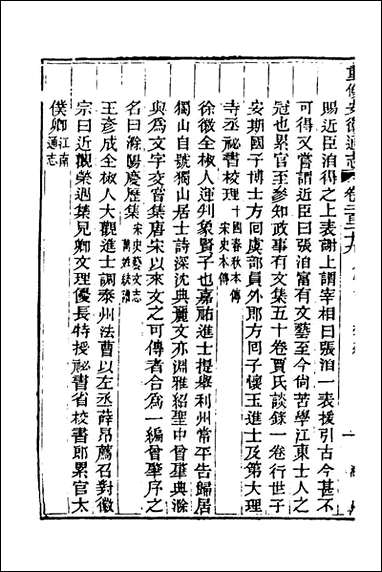 重修安徽通志 卷二百二十九
賜近臣洎得之上表謝上謂宰相曰張洎一表援引古今甚不
可得又嘗謂近臣曰張洎富有文藝至今尙苦學江東士人之
冠也累官至參知政事有文集五十卷賈氏談錄一卷行世子
安期國子博士方囘虞部員外郎方囘子懷玉進士及第大理
寺丞祕書校理十國春秋本傳宋史本傳
徐徽全椒人運判象賢子也嘉祐進士提舉利州常平告歸居
獨山自號獨山居士詩深沈典麗文亦淵雅紹聖中曾肇典滁
與爲文字交嘗集唐宋以來文之可傳者合爲一編曾肇序之
名曰滁陽慶歷集宋史藝文志萬姓統譜
王彥成全椒人大觀進士調泰州法曹以左丞薛昂薦召對徽
宗曰近觀榮遇集見卿文理優長特授祕書省校書郎累官太
僕卿江南通志